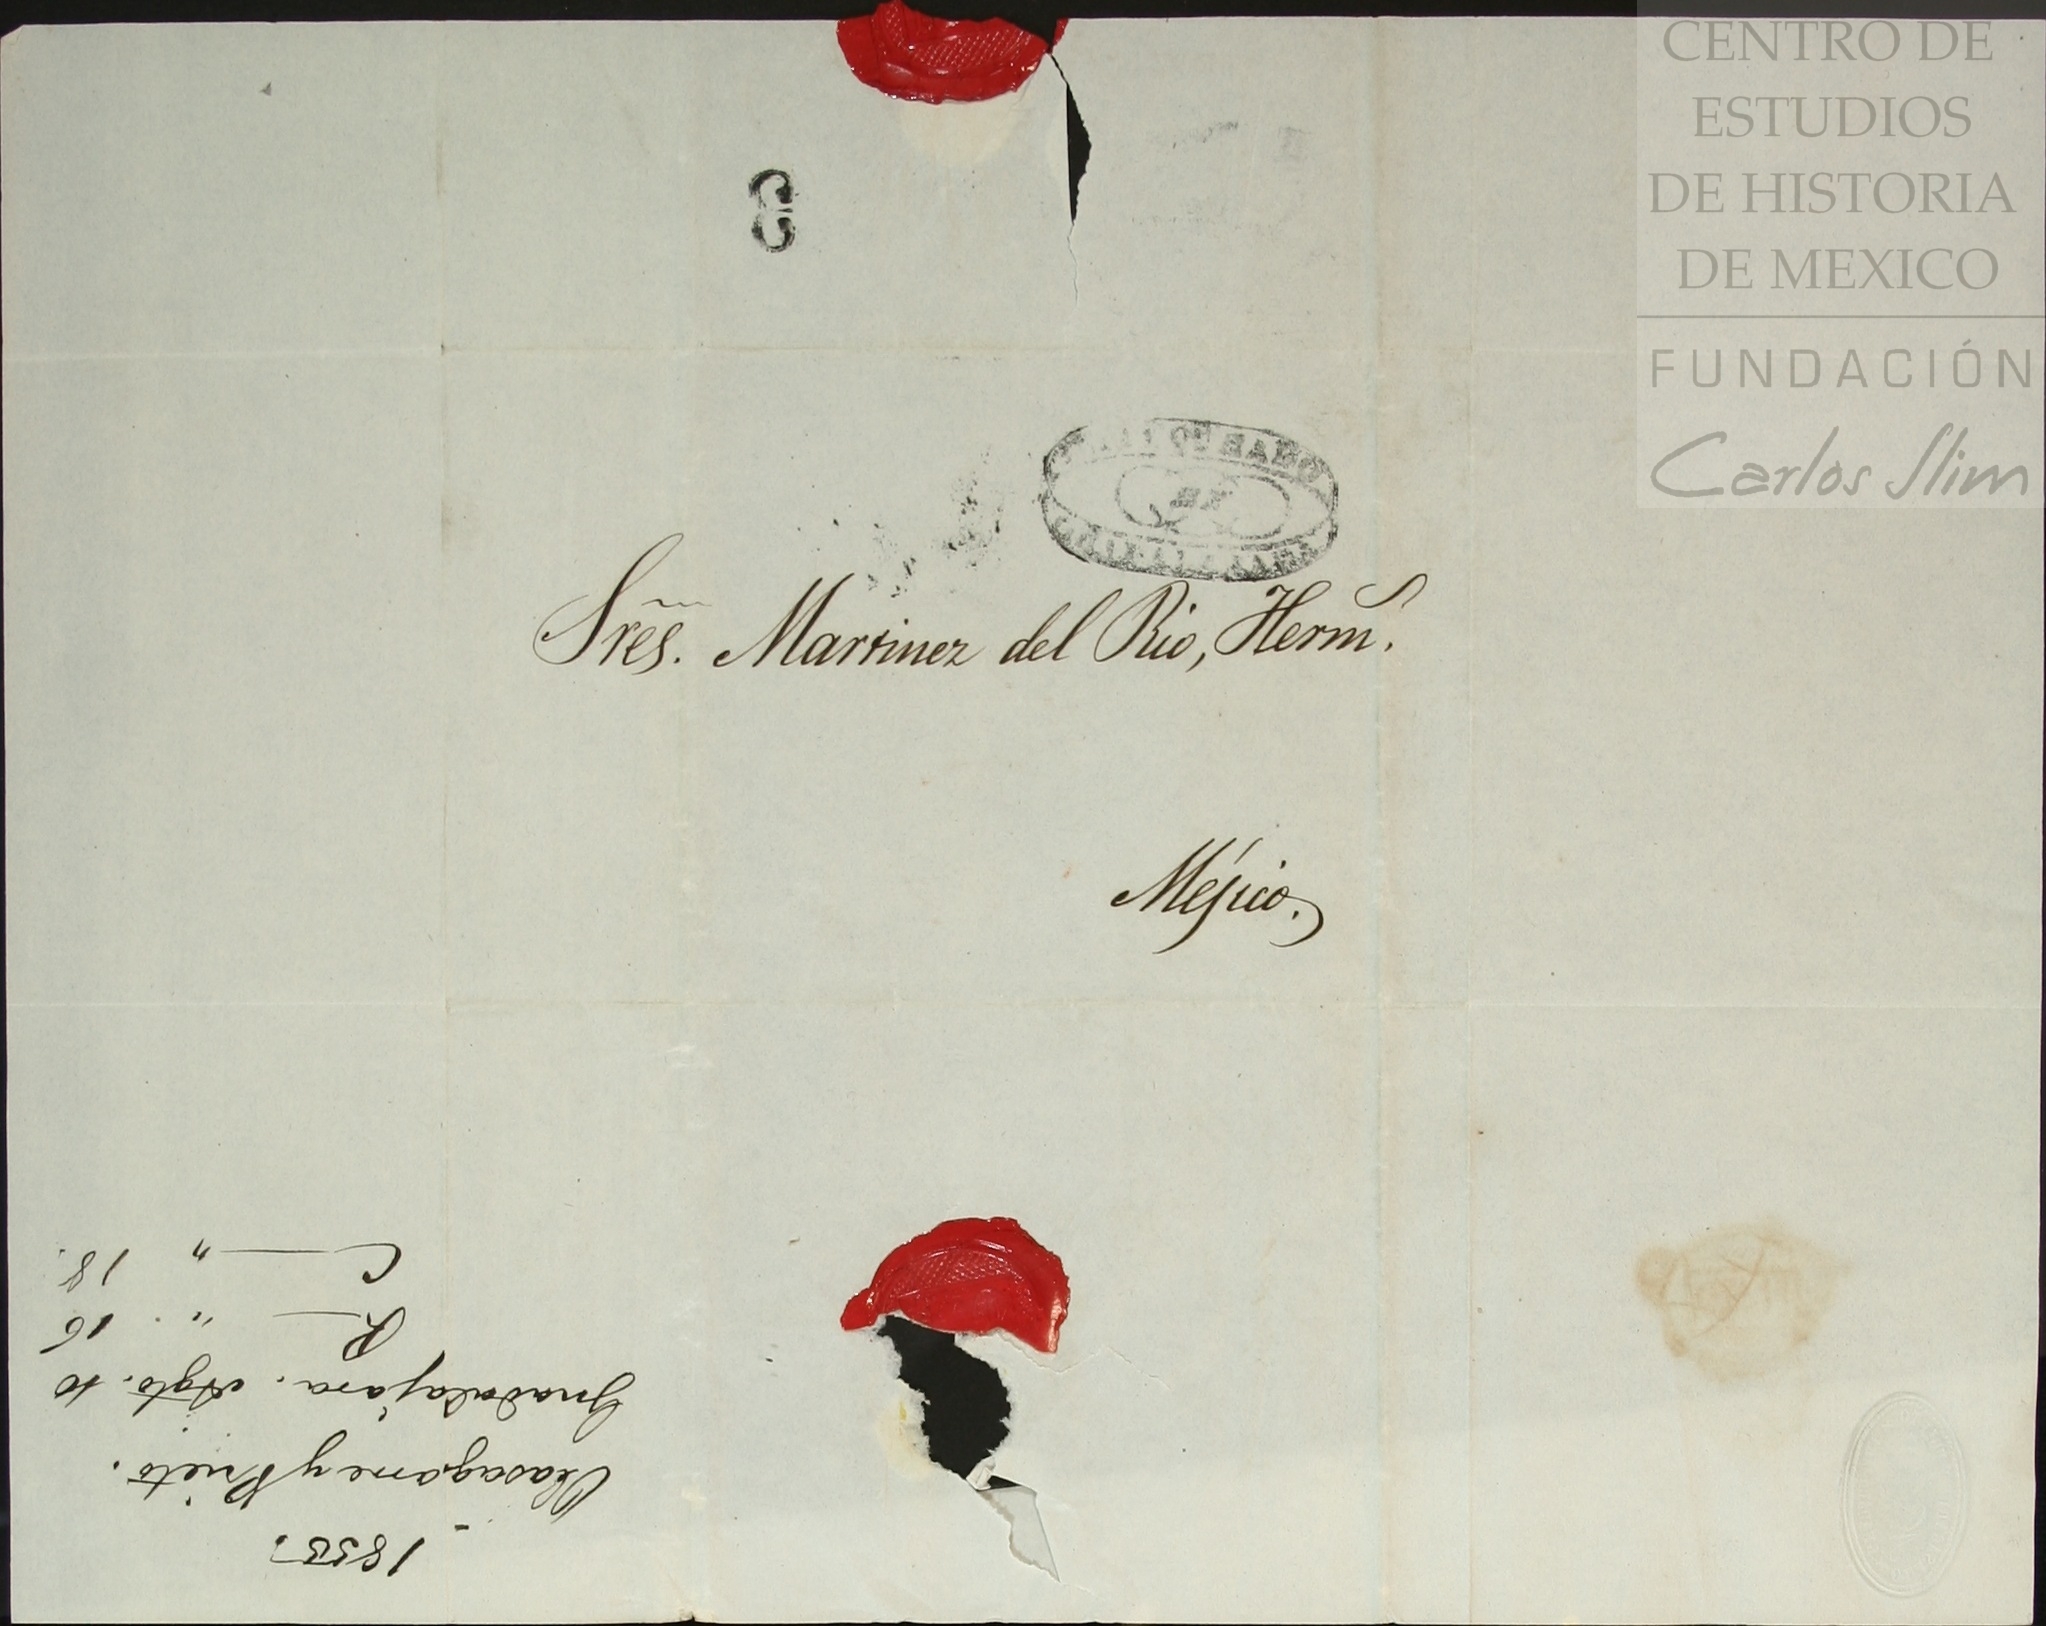 CENTRO DE
ESTUDIOS
DE HISTORIA
DE MEXICO
FUNDACIÓN
Carlos Slim
3
Sres. Martinez del Rio, Herm.
Méjico.
1853.
Olasagarre y Prieto.
Guadalajara. Agto. 10
R — " 16
C — " 18.